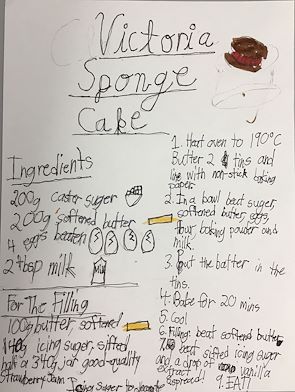 Victoria
Sponge
Cake
Ingredients
200g caster suger
200g softened butter
4 eggs beaten
2 tbsp milk
For The Filling
100g butter, softened
140g icing suger, sifted
half a 340g jar good-quality
Strawberry Jam
Icing suger to decorate
1. Heat oven to 190°C
Butter 2 tins and
line with non-stick baking
paper
2. In a bowl beat suger,
softened butter, eggs,
flour, baking powder and
milk.
3. Put the batter in the
tins.
4. Bake for 20 mins
5. Cool
6. Filling: beat softened butter
7. beat sifted icing suger
and a drop of vanilla
extract
9. EAT!